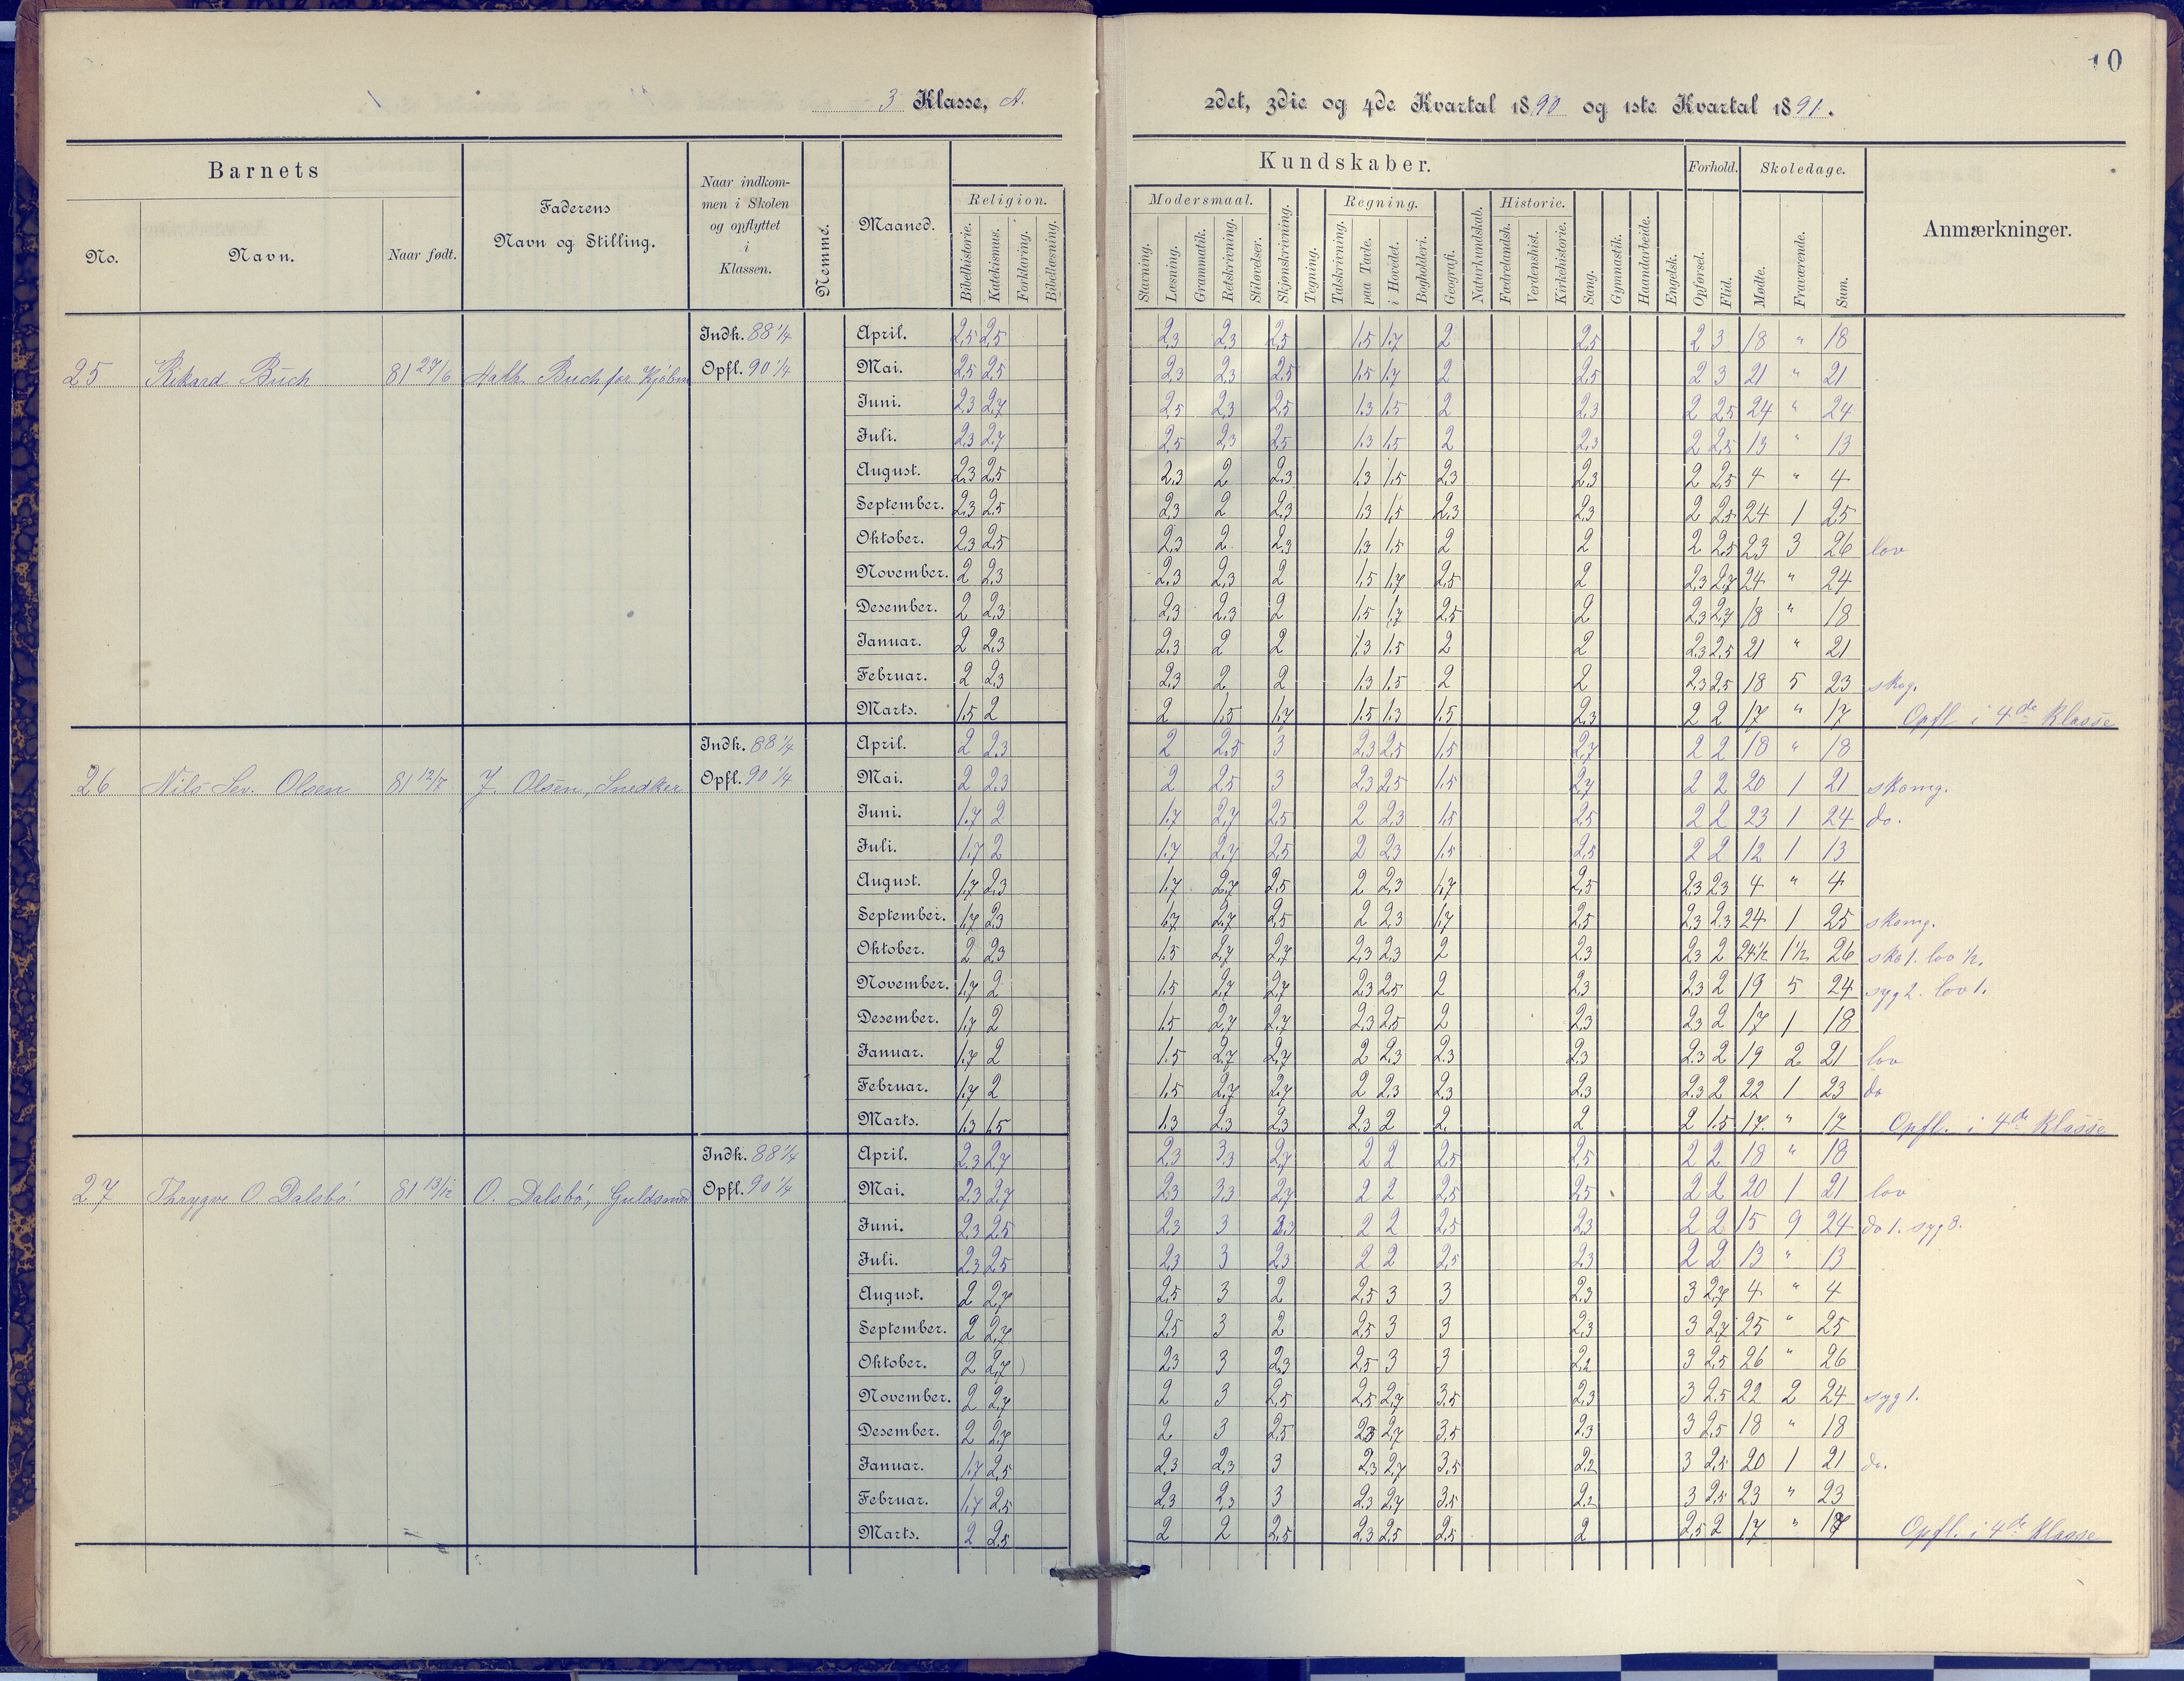 10
3 Klasse, A.
2det, 3die og 4de Kvartal 1890 og 1ste Kvartal 1891.
Barnets
Faderens Navn og Stilling.
Naar indkommen i Skolen og opflyttet i Klassen.
Nemme.
Maaned.
Kundskaber.
Forhold.
Skoledage.
Anmærkninger.
No. Navn. Naar født.
Religion. Modersmaal. Skjønskrivning. Tegning. Regning. Geografi. Naturkundskab. Historie. Sang. Gymnastik. Haandarbeide. Engelsk. Opførsel. Flid. Mødte. Fraværende. Sum.
Bibelhistorie. Katekismus. Forklaring. Bibellæsning. Stavning. Læsning. Grammatik. Retskrivning. Stiløvelser. Talskrivning. paa Tavle. i Hovedet. Bogholderi. Fædrelandsh. Verdenshist. Kirkehistorie.
Indk. 88 1/4 April. 2,5 2,5 2,3 2,3 2,5 1,5 1,7 2 2,5 2 3 18 " 18
25 Rikard Buch 81 27/6 Buch for Kjøbm Opfl. 90 1/4 Mai. 2,5 2,5 2,3 2,3 2,5 1,5 1,7 2 2,5 2 3 21 " 21
Juni. 2,3 2,7 2,5 2,3 2,5 1,3 1,5 2 2,3 2 2,5 24 " 24
Juli. 2,3 2,7 2,5 2,3 2,5 1,3 1,5 2 2,3 2 2,5 13 " 13
August. 2,3 2,5 2,3 2 2,3 1,3 1,5 2,3 2,3 2 2,5 4 " 4
September. 2,3 2,5 2,3 2 2,3 1,3 1,5 2,3 2,3 2 2,5 24 1 25
Oktober. 2,3 2,5 2,3 2 2,3 1,3 1,5 2 2 2 2,5 23 3 26 lov
November. 2 2,3 2,3 2,3 2 1,5 1,7 2,5 2 2,3 2,7 24 " 24
Desember. 2 2,3 2,3 2,3 2 1,5 1,7 2,5 2 2,3 2,7 18 " 18
Januar. 2 2,3 2,3 2 2 1,3 1,5 2 2 2,3 2,5 21 " 21
Februar. 2 2,3 2,3 2 2 1,3 1,5 2 2 2,3 2,5 18 5 23
Marts. 1,5 2 2 1,5 1,7 1,5 1,3 1,5 2,3 2 2 17 " 17 Opfl. i 4de Klasse
Indk. 88 1/4 April. 2 2,3 2 2,5 3 2,3 2,5 1,5 2,7 2 2 18 " 18
26 Nils Sev. Olsen 81 12/7 J. Olsen, Snedker Opfl. 90 1/4 Mai. 2 2,3 2 2,5 3 2,3 2,5 1,5 2,7 2 2 20 1 21 skomg.
Juni. 1,7 2 1,7 2,7 2,5 2 2,3 1,5 2,5 2 2 23 1 24 do.
Juli. 1,7 2 1,7 2,7 2,5 2 2,3 1,5 2,5 2 2 12 1 13
August. 1,7 2,3 1,7 2,7 2,5 2 2,3 1,7 2,5 2,3 2,3 4 " 4
September. 1,7 2,3 1,7 2,7 2,5 2 2,3 1,7 2,5 2,3 2,3 24 1 25 skomg.
Oktober. 2 2,3 1,5 2,7 2,7 2,3 2,3 2 2,3 2,3 2 24 1/2 1 1/2 26 sko 1. lov 1/2.
November. 1,7 2 1,5 2,7 2,7 2,3 2,5 2 2,3 2,3 2 19 5 24 syg 2. lov 1.
Desember. 1,7 2 1,5 2,7 2,7 2,3 2,5 2 2,3 2,3 2 17 1 18
Januar. 1,7 2 1,5 2,7 2,7 2 2,3 2,3 2,3 2,3 2 19 2 21 lov
Februar. 1,7 2 1,5 2,7 2,7 2 2,3 2,3 2,3 2,3 2 22 1 23 do
Marts. 1,3 1,5 1,3 2,3 2,3 2,3 2 2 2 2 1,5 17 " 17 Opfl. i 4de Klasse
Indk. 88 1/4 April. 2,3 2,7 2,3 3,3 2,7 2 2 2,5 2,5 2 2 18 " 18
27 Thrygve O Dalsbó 81 13/12 O. Dalsbó, Guldsmed Opfl. 90 1/4 Mai. 2,3 2,7 2,3 3,3 2,7 2 2 2,5 2,5 2 2 20 1 21 lov
Juni. 2,3 2,5 2,3 3 2,3 2 2 2,5 2,3 2 2 15 9 24 do 1. syg 8.
Juli. 2,3 2,5 2,3 3 2,3 2 2 2,5 2,3 2 2 13 " 13
August. 2 2,7 2,5 3 2 2,5 3 3 2,3 3 2,7 4 " 4
September. 2 2,7 2,5 3 2 2,5 3 3 2,3 3 2,7 25 " 25
Oktober. 2 2,7 2,3 3 2,3 2,5 3 3 2,2 3 2,5 26 " 26
November. 2 2,7 2 3 2,5 2,5 2,7 3,5 2,3 3 2,5 22 2 24 syg 1.
Desember. 2 2,7 2 3 2,5 2,3 2,7 3,5 2,3 3 2,5 18 " 18
Januar. 1,7 2,5 2,3 2,3 3 2,3 2,7 3,5 2,2 3 2,5 20 1 21 do.
Februar. 1,7 2,5 2,3 2,3 3 2,3 2,7 3,5 2,2 3 2,5 23 " 23
Marts. 2 2,5 2 2 2,5 2,3 2,5 2,5 2 2,5 2 17 " 17 Opfl. i 4de Klasse